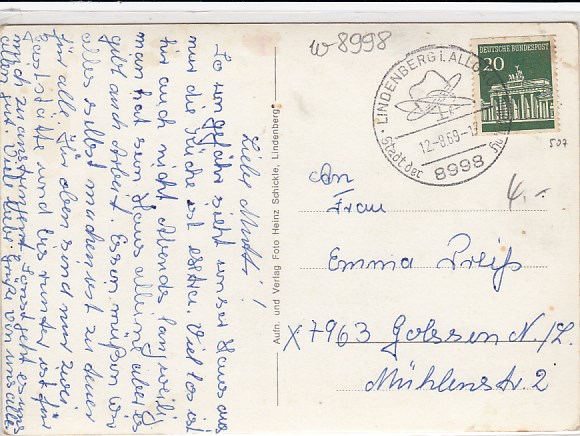 Liebe Mutti!
So ungefähr sieht unser Haus aus
nur die Küche ist extra. Viel los ist
hir auch nicht Abends langweilig
man hat sein Haus allein aber es
gibt auch Arbeit. Essen mußen wir
alles selbst machen ist zu teuer
für alle. Für oben sind nur zwei
und bis runter ist für
Sonst geht es uns
allen gut. Viele liebe Grüße von uns allen
Aufn. und Verlag Foto Heinz Schickle, Lindenberg
w 8998
LINDENBERG I. ALLG
12.-8.69.-1
Stadt der
8998
DEUTSCHE BUNDESPOST
20
507
4,-
An
Frau
Emma Preiß
X 7963 Golssen N./L.
Mühlenstr. 2